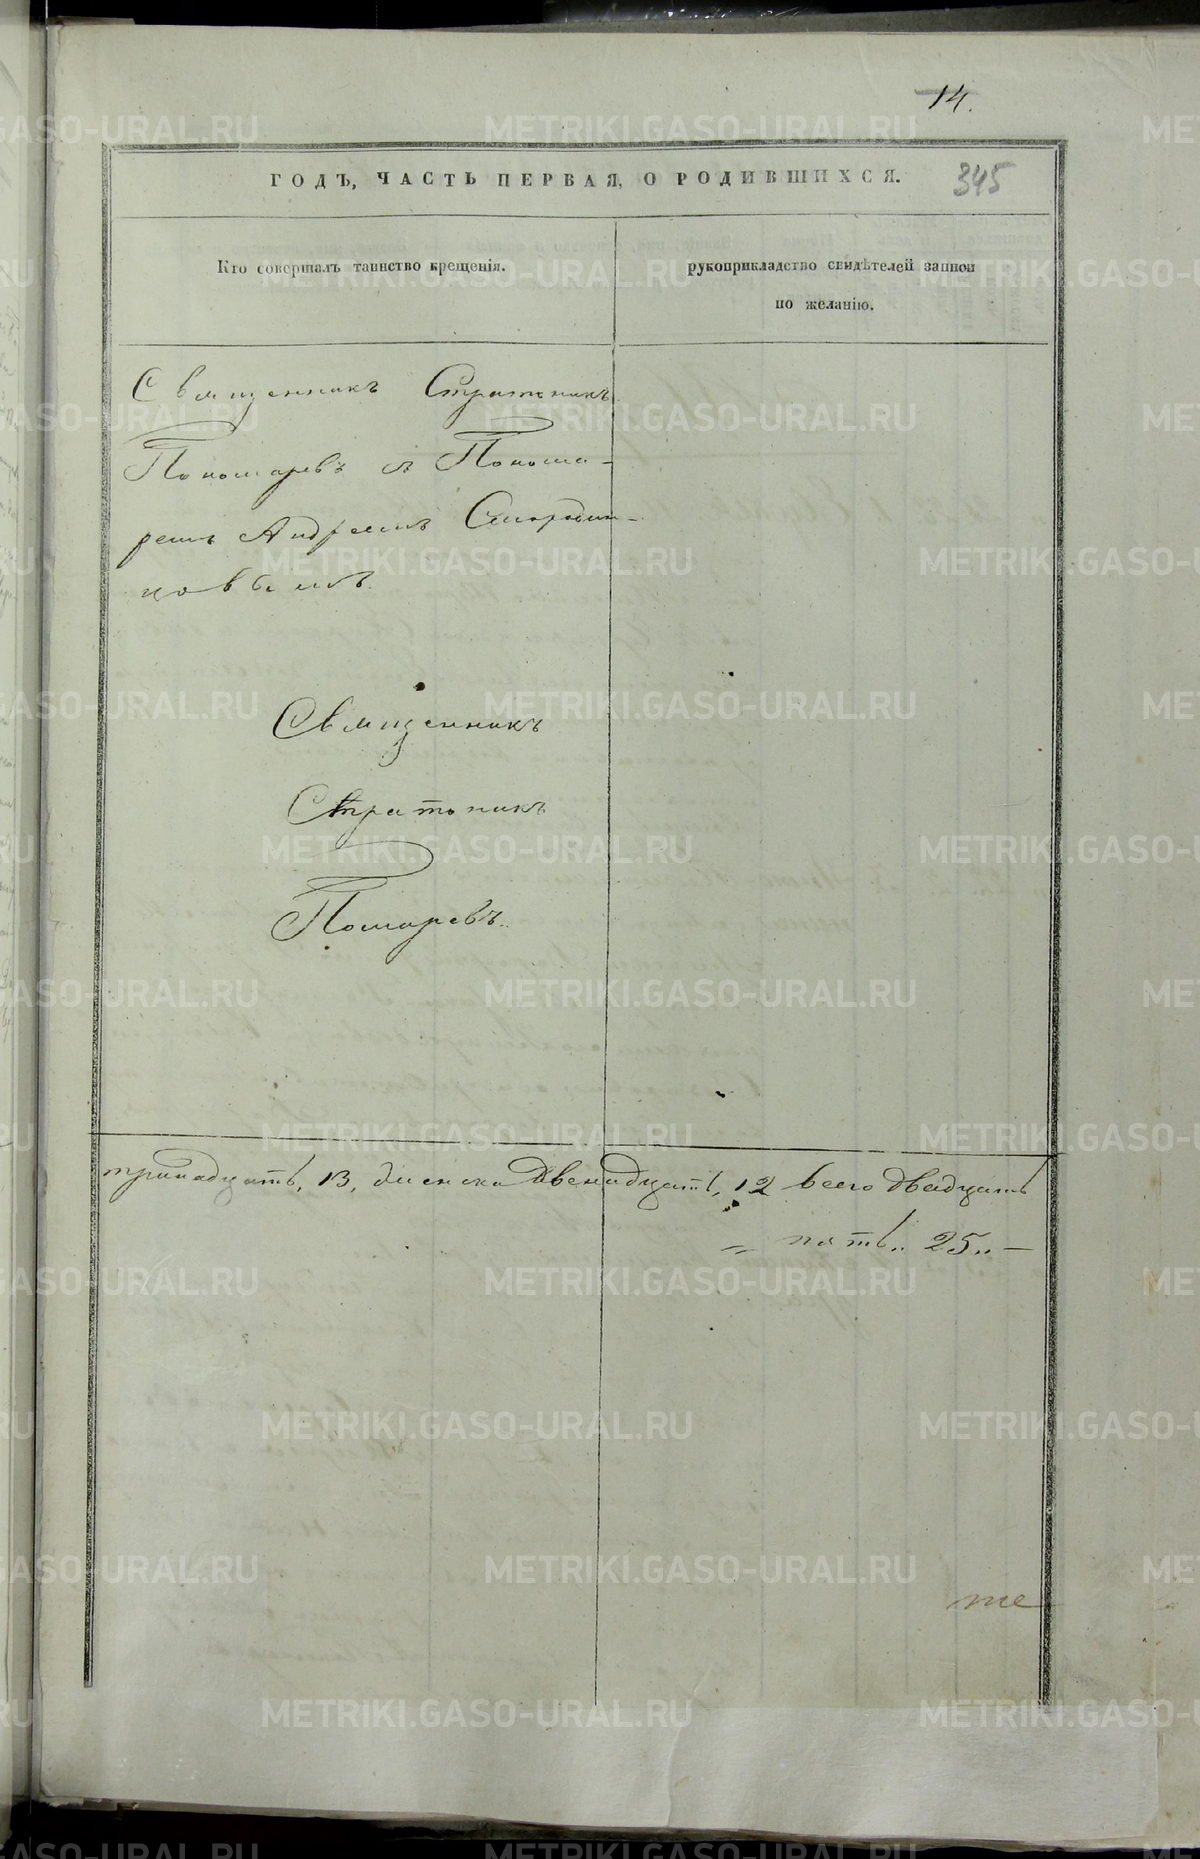 14.
ГОДЪ, ЧАСТЬ ПЕРВАЯ, О РОДИВШИХСЯ.
345
Кто совершалъ таинство крещенія.
рукоприкладство свидѣтелей записи
по желанію.
Священникъ Стратоникъ
Пономаревъ съ Понома-
ремъ Андреемъ Смородин-
цовымъ.
Священникъ
Стратоникъ
Помаревъ.
тринадцать, 13, женска двенадцать, 12 всего двадцать
= пять „ 25 „ —
METRIKI.GASO-URAL.RU